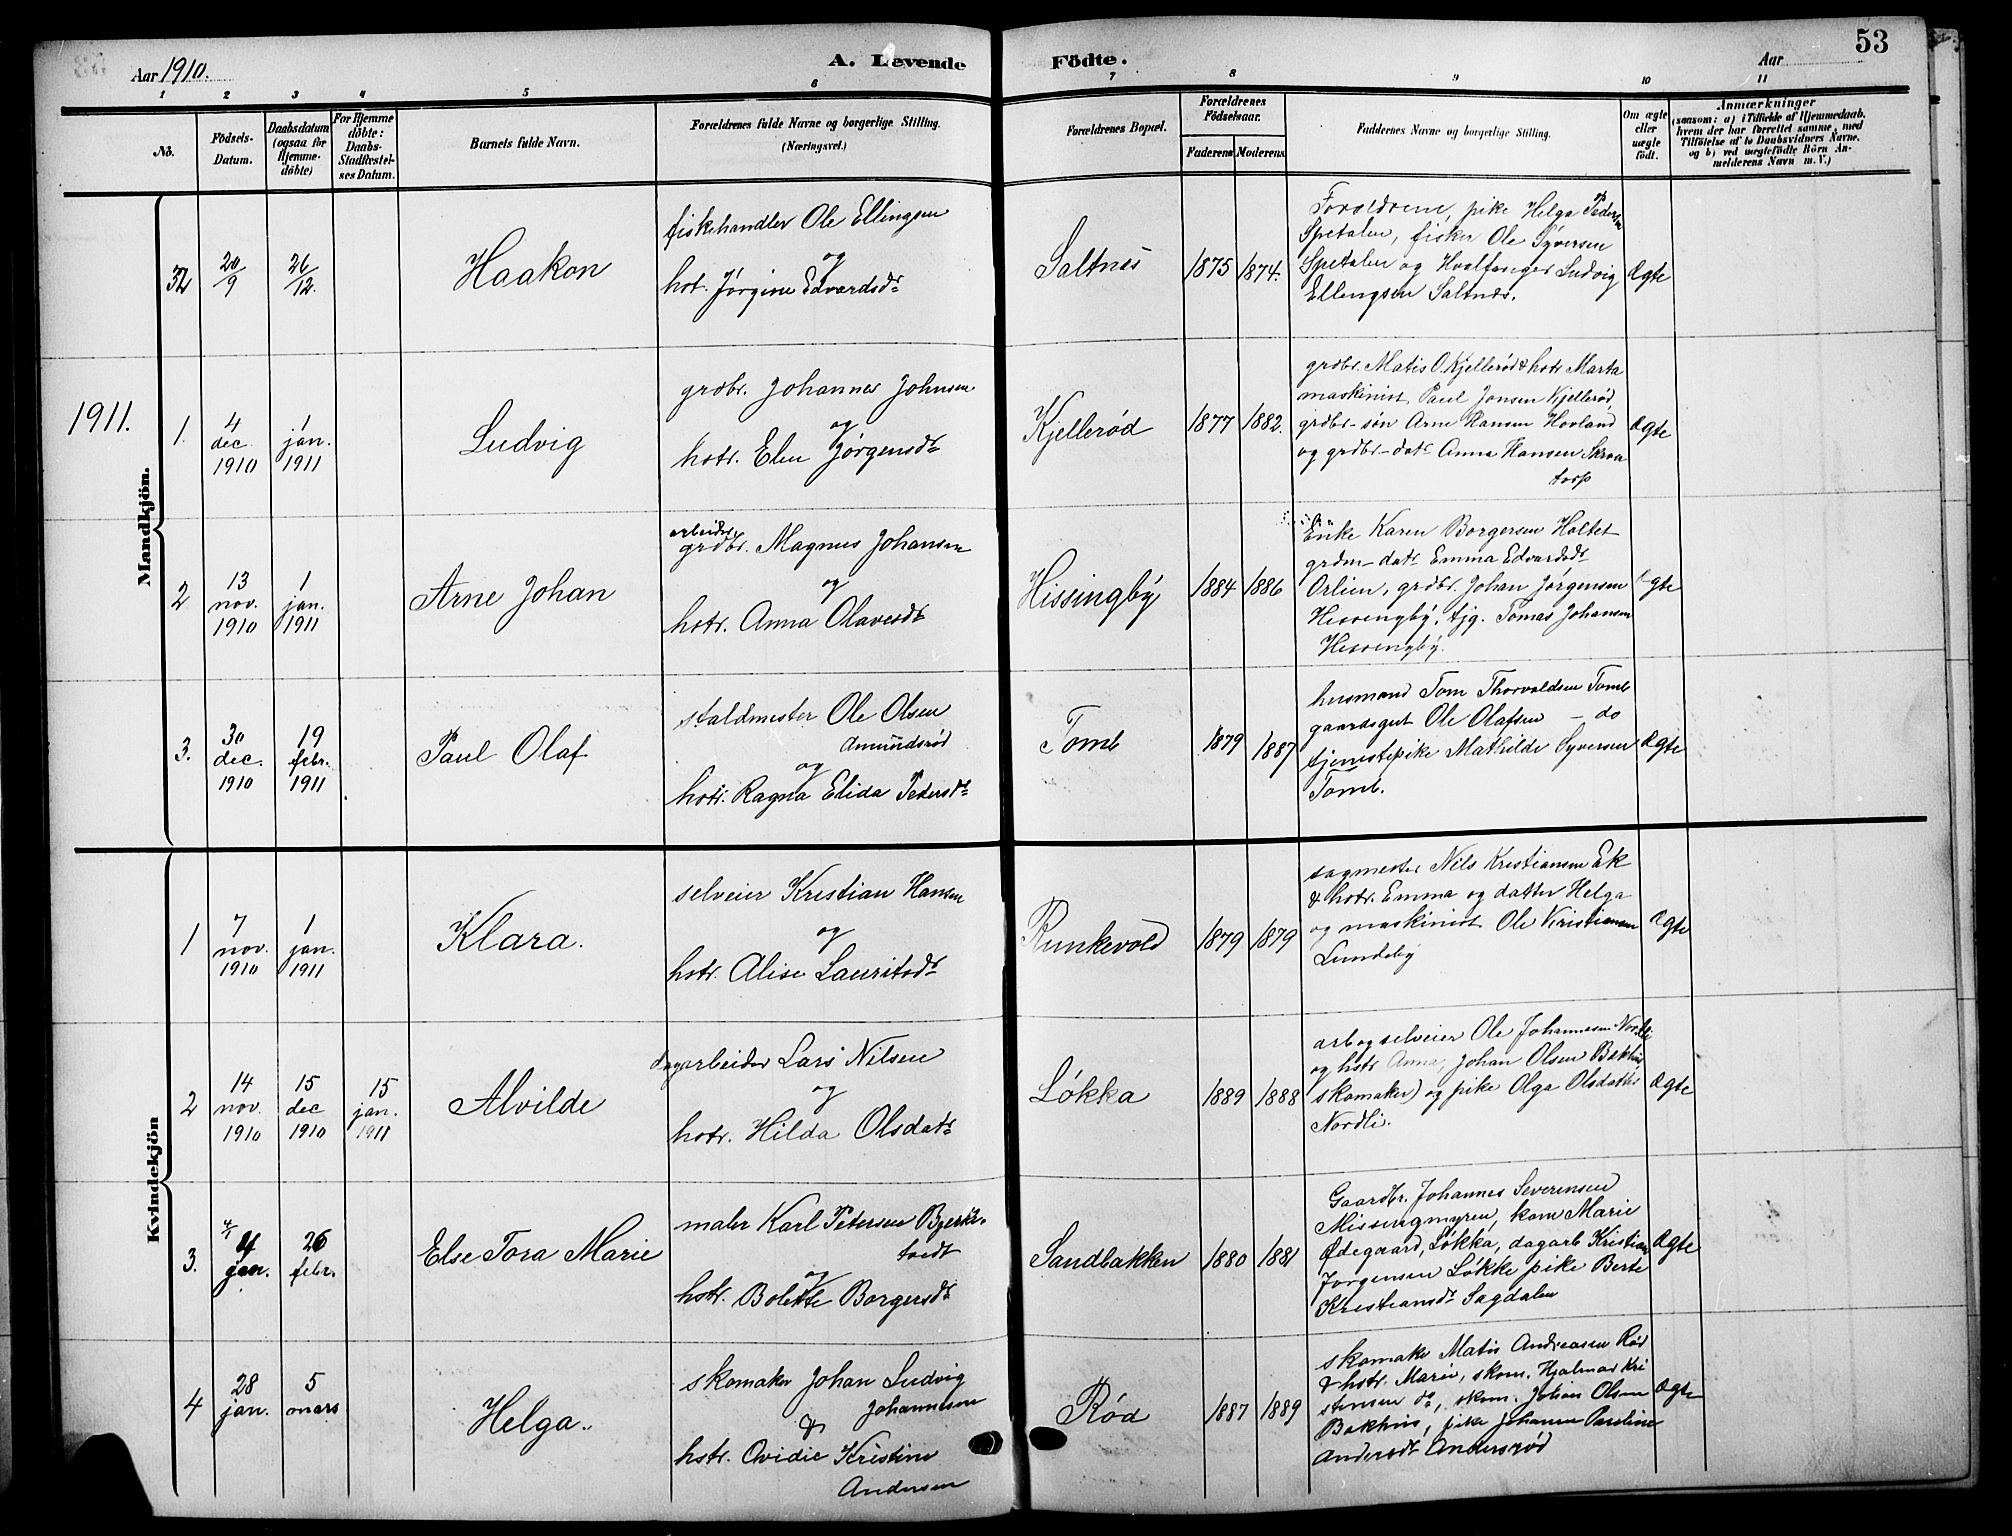 Aar 1910.
A. Levende Fødte.
Aar
53
1 2 3 4 5 6 7 8 9 10 11
No.
Fødsels-
Datum.
Daabsdatum
(ogsaa for
Hjemme-
døbte)
For Hjemme
døbte:
Daabs-
Stadfæstel-
ses Datum.
Barnets fulde Navn.
Forældrenes fulde Navne og borgerlige Stilling.
(Næringsvei.)
Forældrenes Bopæl.
Forældrenes
Fødselsaar.
Faderens. Moderens.
Faddernes Navne og borgerlige Stilling.
Om ægte
eller
uægte
født.
Anmærkninger
(saasom: a) i Tilfælde af Hjemmedaab,
hvem der har forrettet samme, med
Tilføielse af to Daabsvidners Navne.
og b) ved uægtefødte Børn An-
melderens Navn m. V.)
Mandkjön.
32
20/9
26/12.
Haakon
fiskehandler Ole Ellingsen
og
hst. Jørgine Edvardsdr
Saltnes
1875
1874.
Forældrene, pike Helga Pedersen
Spetalen, fisker Ole Syversen
Spetalen og Hvalfanger Ludvig
Ellingsen Saltnes.
Ægte
1911.
1.
4
dec.
1910
1
jan.
1911
Ludvig
grdbr. Johannes Johnsen
og
hstr. Elen Jørgensdtr
Kjellerød
1877
1882.
grdbr. Matis O. Kjellerød & hstr Marta
maskinist Paul Jonsen Kjellerød,
grdbr-søn Arne Hansen Hovland
og grdbr-datr Anna Hansen Skraa
torp
Ægte
2
13
nov.
1910
1
jan.
1911
Arne Johan
arbeider
grdbr. Magnus Johansen
og
hstr. Anna Olavesdtr
Hissingby
1884
1886
Enke Karen Borgersen Holtet
grdm-datr Emma Edvardsdr
Orlien, grdbr. Johan Jørgensen
Hissingby, tjg. Tomas Johansen
Hissingby.
Ægte
3.
30
dec.
1910
19
febr.
1911
Paul Olaf
staldmester Ole Olsen
Amundsrød
og
hstr. Ragna Elida Pedersdtr
Tomb
1879
1887
husmand Tom Thorvaldsen Tomb
gaardsgut Ole Olafsen - do
tjenestepike Mathilde Syversen
Tomb.
Ægte
Kvindekjön
1
7
nov.
1910
1
jan.
1911
Klara.
selveier Kristian Hansen
og
hstr. Alise Lauritsdr
Runkevold
1879
1879
sagmester Nils Kristiansen Ek
& hstr. Emma og datter Helga
og maskinist Ole Kristiansen
Lundeby
Ægte
2
14
nov.
1910
15
dec
1910
15
jan.
1911
Alvilde
dagarbeider Lars Nilsen
og
hstr. Hilda Olsdatr
Løkka
1889
1888
arb og selveier Ole Johannesen Nordli
og hstr Anna, Johan Olsen Bakhus
skomaker) og pike Olga Olsdatter
Nordli.
Ægte
3.
4
jan.
26
febr.
Else Tora Marie
maler Karl Petersen Bjerke-
tvedt
og
hstr. Bolette Borgersdr
Sandbakken
1880
1881
Gaardbr. Johannes Severensen
Missingmyren, kone Marie
Ødegaard, Løkka, dagarb Kristian
Jørgensen Løkke pike Berte
Kristiansdr Sagdalen
Ægte
4
28
jan.
5
mars
Helga.
skomaker Johan Ludvig
Johannesen
&
hstr. Ovidie Kristine
Andersen
Rød
1887
1889
skomaker Matis Andreasen Rød
& hstr. Marie, skom. Hjalmar Kri
stensen do, skom. Johan Olsen
Bakhus, pike Johanne Pauline
Andersdtr Andersrød
Ægte